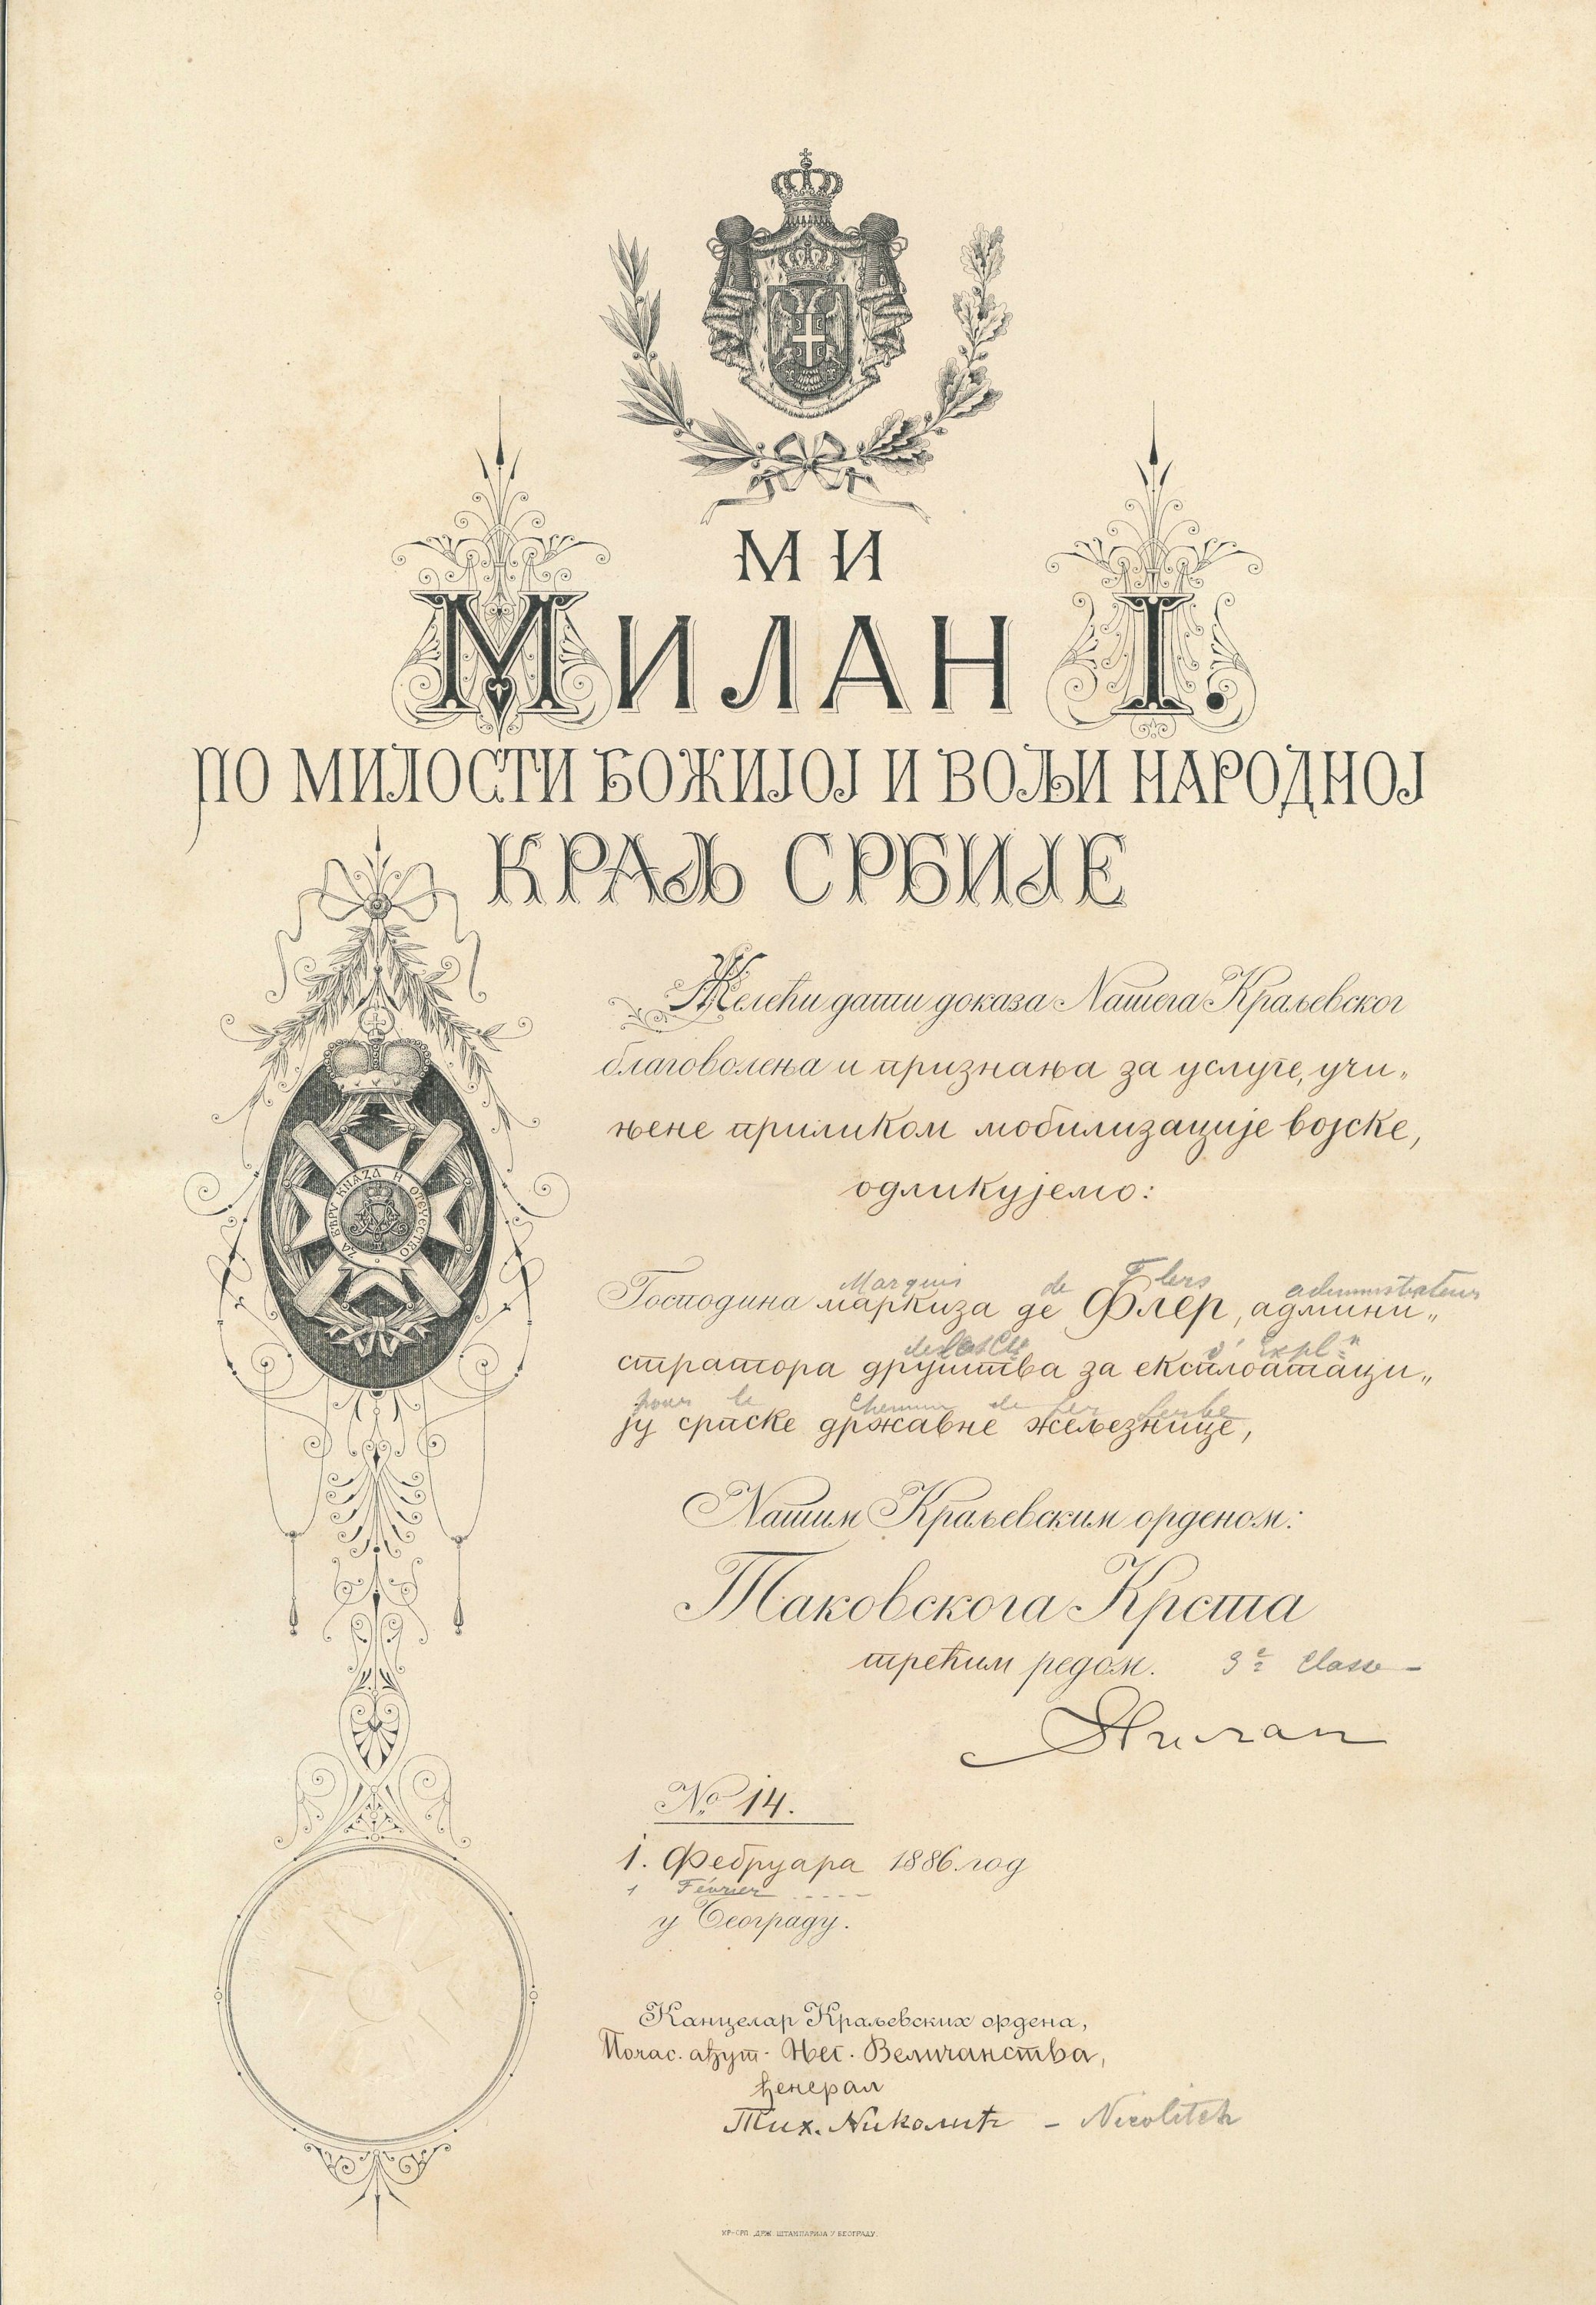 МИ
МИЛАН I.
ПО МИЛОСТИ БОЖИЈОЈ И ВОЉИ НАРОДНОЈ
КРАЉ СРБИЈЕ
Желећи дати доказа Нашега Краљевског
благовољења и признања за услуге, учи„
њене приликом мобилизације војске,
одликујемо:
ZА ВѢРУ КНАZА И ОТЕЧЕСТВО
Marquis de Flers administrateur
Господина маркиза де Флер, админи„
d' Expl.n
стратора друштва за експлоатаци„
pour le Chemin de fer Serbe
ју српске државне жељезнице,
Нашим Краљевским орденом:
Таковскога Крста
трећим редом. 3e Classe –
Милан
No 14.
1. Фебруара 1886. год
1 Février .....
у Београду.
Канцелар Краљевских ордена,
Почас. ађут. Њег. Величанства,
ђенерал
Тих. Николић – Nicolitch
КР-СРП. ДРЖ. ШТАМПАРИЈА У БЕОГРАДУ.